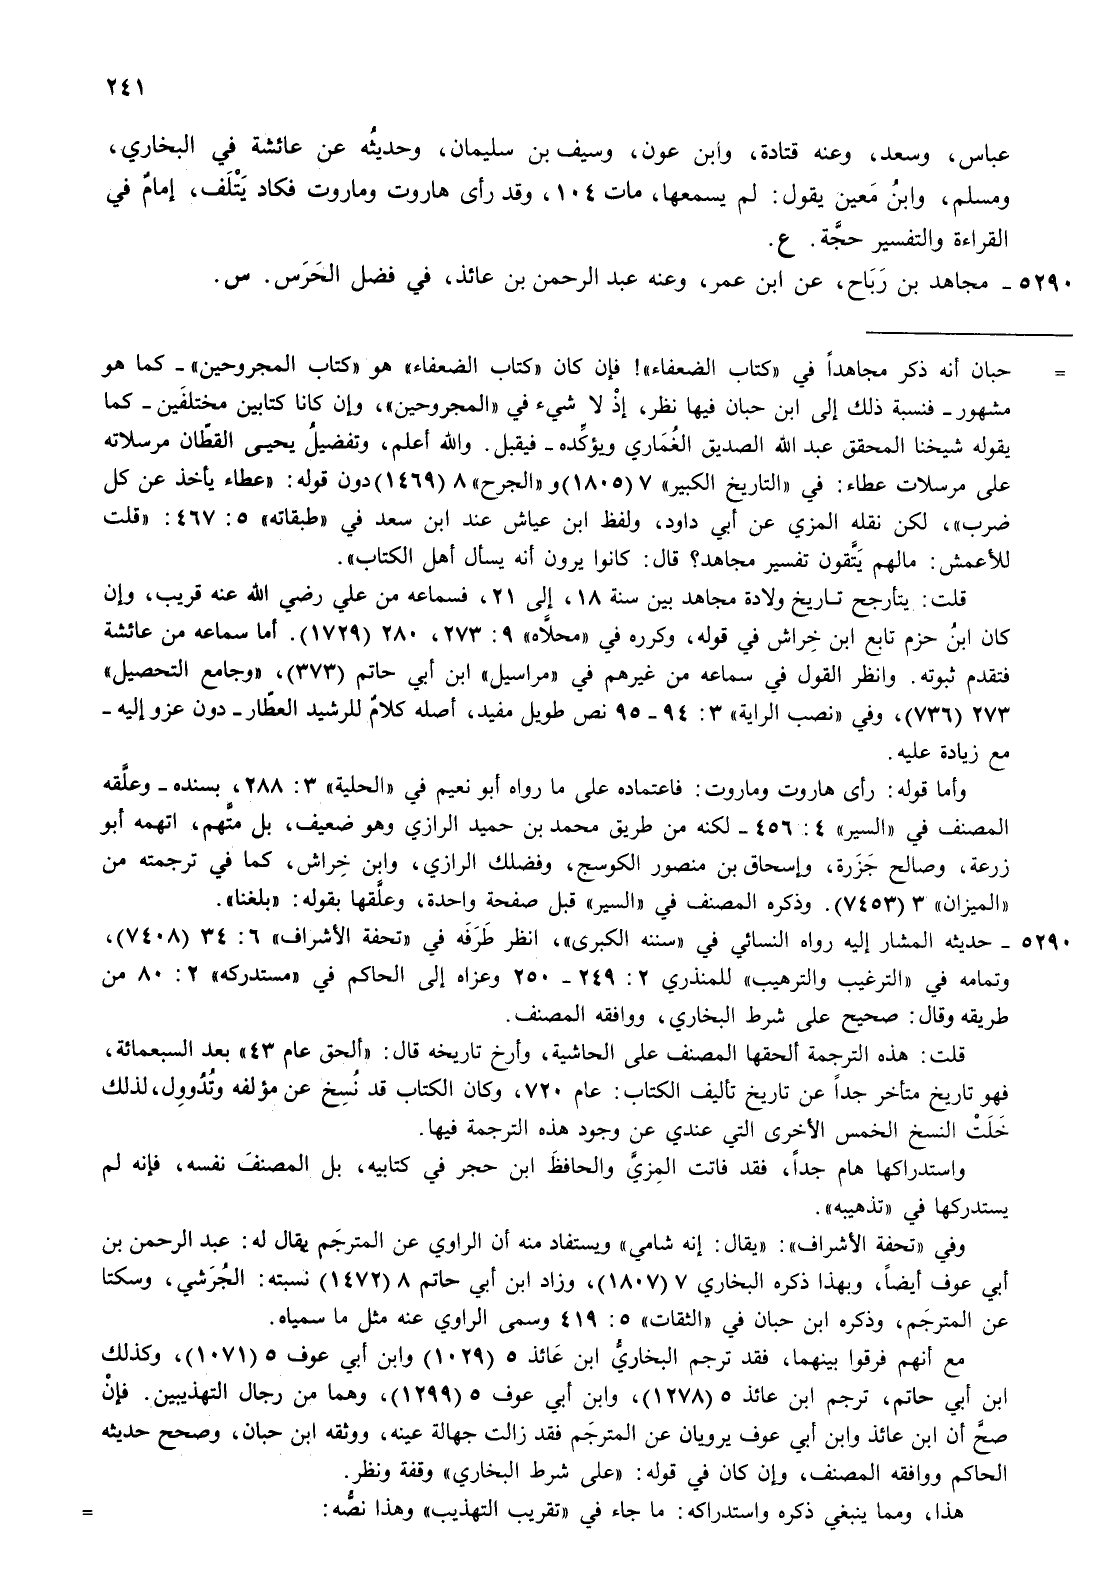 ٢٤١
عباس، وسعد، وعنه قتادة، وابن عون، وسيف بن سليمان، وحديثُه عن عائشة في البخاري،
ومسلم، وابنُ مَعين يقول: لم يسمعها، مات ١٠٤، وقد رأى هاروت وماروت فكاد يَتْلَف، إمامٌ في
القراءة والتفسير حجَّة. ع.
٥٢٩٠ ـ مجاهد بن رَبَاح، عن ابن عمر، وعنه عبد الرحمن بن عائذ، في فضل الحَرَس. س.
= حبان أنه ذكر مجاهداً في «كتاب الضعفاء»! فإن كان «كتاب الضعفاء» هو «كتاب المجروحين» ـ كما هو
مشهور ـ فنسبة ذلك إلى ابن حبان فيها نظر، إذْ لا شيء في «المجروحين»، وإن كانا كتابين مختلفَين ـ كما
يقوله شيخنا المحقق عبد الله الصديق الغُمَاري ويؤكِّده ـ فيقبل. والله أعلم، وتفضيلُ يحيى القطّان مرسلاته
على مرسلات عطاء: في «التاريخ الكبير» ٧ (١٨٠٥) و«الجرح» ٨ (١٤٦٩) دون قوله: «عطاء يأخذ عن كل
ضرب»، لكن نقله المزي عن أبي داود، ولفظ ابن عياش عند ابن سعد في «طبقاته» ٥: ٤٦٧: «قلت
للأعمش: مالهم يَتَّقون تفسير مجاهد؟ قال: كانوا يرون أنه يسأل أهل الكتاب».
قلت: يتأرجح تاريخ ولادة مجاهد بين سنة ١٨، إلى ٢١، فسماعه من علي رضي الله عنه قريب، وإن
كان ابنُ حزم تابع ابن خِراش في قوله، وكرره في «محلَّاه» ٩: ٢٧٣، ٢٨٠ (١٧٢٩). أما سماعه من عائشة
فتقدم ثبوته. وانظر القول في سماعه من غيرهم في «مراسيل» ابن أبي حاتم (٣٧٣)، «وجامع التحصيل»
٢٧٣ (٧٣٦)، وفي «نصب الراية» ٣: ٩٤ ـ ٩٥ نص طويل مفيد، أصله كلامٌ للرشيد العطّار ـ دون عزو إليه ـ
مع زيادة عليه.
وأما قوله: رأى هاروت وماروت: فاعتماده على ما رواه أبو نعيم في «الحلية» ٣: ٢٨٨، بسنده ـ وعلَّقه
المصنف في «السير» ٤: ٤٥٦ ـ لكنه من طريق محمد بن حميد الرازي وهو ضعيف، بل متَّهم، اتهمه أبو
زرعة، وصالح جَزَرة، وإسحاق بن منصور الكوسج، وفضلك الرازي، وابن خِراش، كما في ترجمته من
«الميزان» ٣ (٧٤٥٣). وذكره المصنف في «السير» قبل صفحة واحدة، وعلَّقها بقوله: «بلغنا».
٥٢٩٠ ـ حديثه المشار إليه رواه النسائي في «سننه الكبرى»، انظر طَرَفه في «تحفة الأشراف» ٦: ٣٤ (٧٤٠٨)،
وتمامه في «الترغيب والترهيب» للمنذري ٢: ٢٤٩ ـ ٢٥٠ وعزاه إلى الحاكم في «مستدركه» ٢: ٨٠ من
طريقه وقال: صحيح على شرط البخاري، ووافقه المصنف.
قلت: هذه الترجمة ألحقها المصنف على الحاشية، وأرخ تاريخه قال: «ألحق عام ٤٣» بعد السبعمائة،
فهو تاريخ متأخر جداً عن تاريخ تأليف الكتاب: عام ٧٢٠، وكان الكتاب قد نُسِخ عن مؤلفه وتُدُووِل، لذلك
خَلَتْ النسخ الخمس الأخرى التي عندي عن وجود هذه الترجمة فيها.
واستدراكها هام جداً، فقد فاتت المِزيَّ والحافظَ ابن حجر في كتابيه، بل المصنفَ نفسه، فإنه لم
يستدركها في «تذهيبه».
وفي «تحفة الأشراف»: «يقال: إنه شامي» ويستفاد منه أن الراوي عن المترجَم يقال له: عبد الرحمن بن
أبي عوف أيضاً، وبهذا ذكره البخاري ٧ (١٨٠٧)، وزاد ابن أبي حاتم ٨ (١٤٧٢) نسبته: الجُرَشي، وسكتا
عن المترجَم، وذكره ابن حبان في «الثقات» ٥: ٤١٩ وسمى الراوي عنه مثل ما سمياه.
مع أنهم فرقوا بينهما، فقد ترجم البخاريُّ ابن عَائذ ٥ (١٠٢٩) وابن أبي عوف ٥ (١٠٧١)، وكذلك
ابن أبي حاتم، ترجم ابن عائذ ٥ (١٢٧٨)، وابن أبي عوف ٥ (١٢٩٩)، وهما من رجال التهذيبين. فإنْ
صحَّ أن ابن عائذ وابن أبي عوف يرويان عن المترجَم فقد زالت جهالة عينه، ووثقه ابن حبان، وصحح حديثه
الحاكم ووافقه المصنف، وإن كان في قوله: «على شرط البخاري» وقفة ونظر.
هذا، ومما ينبغي ذكره واستدراكه: ما جاء في «تقريب التهذيب» وهذا نصُّه: =